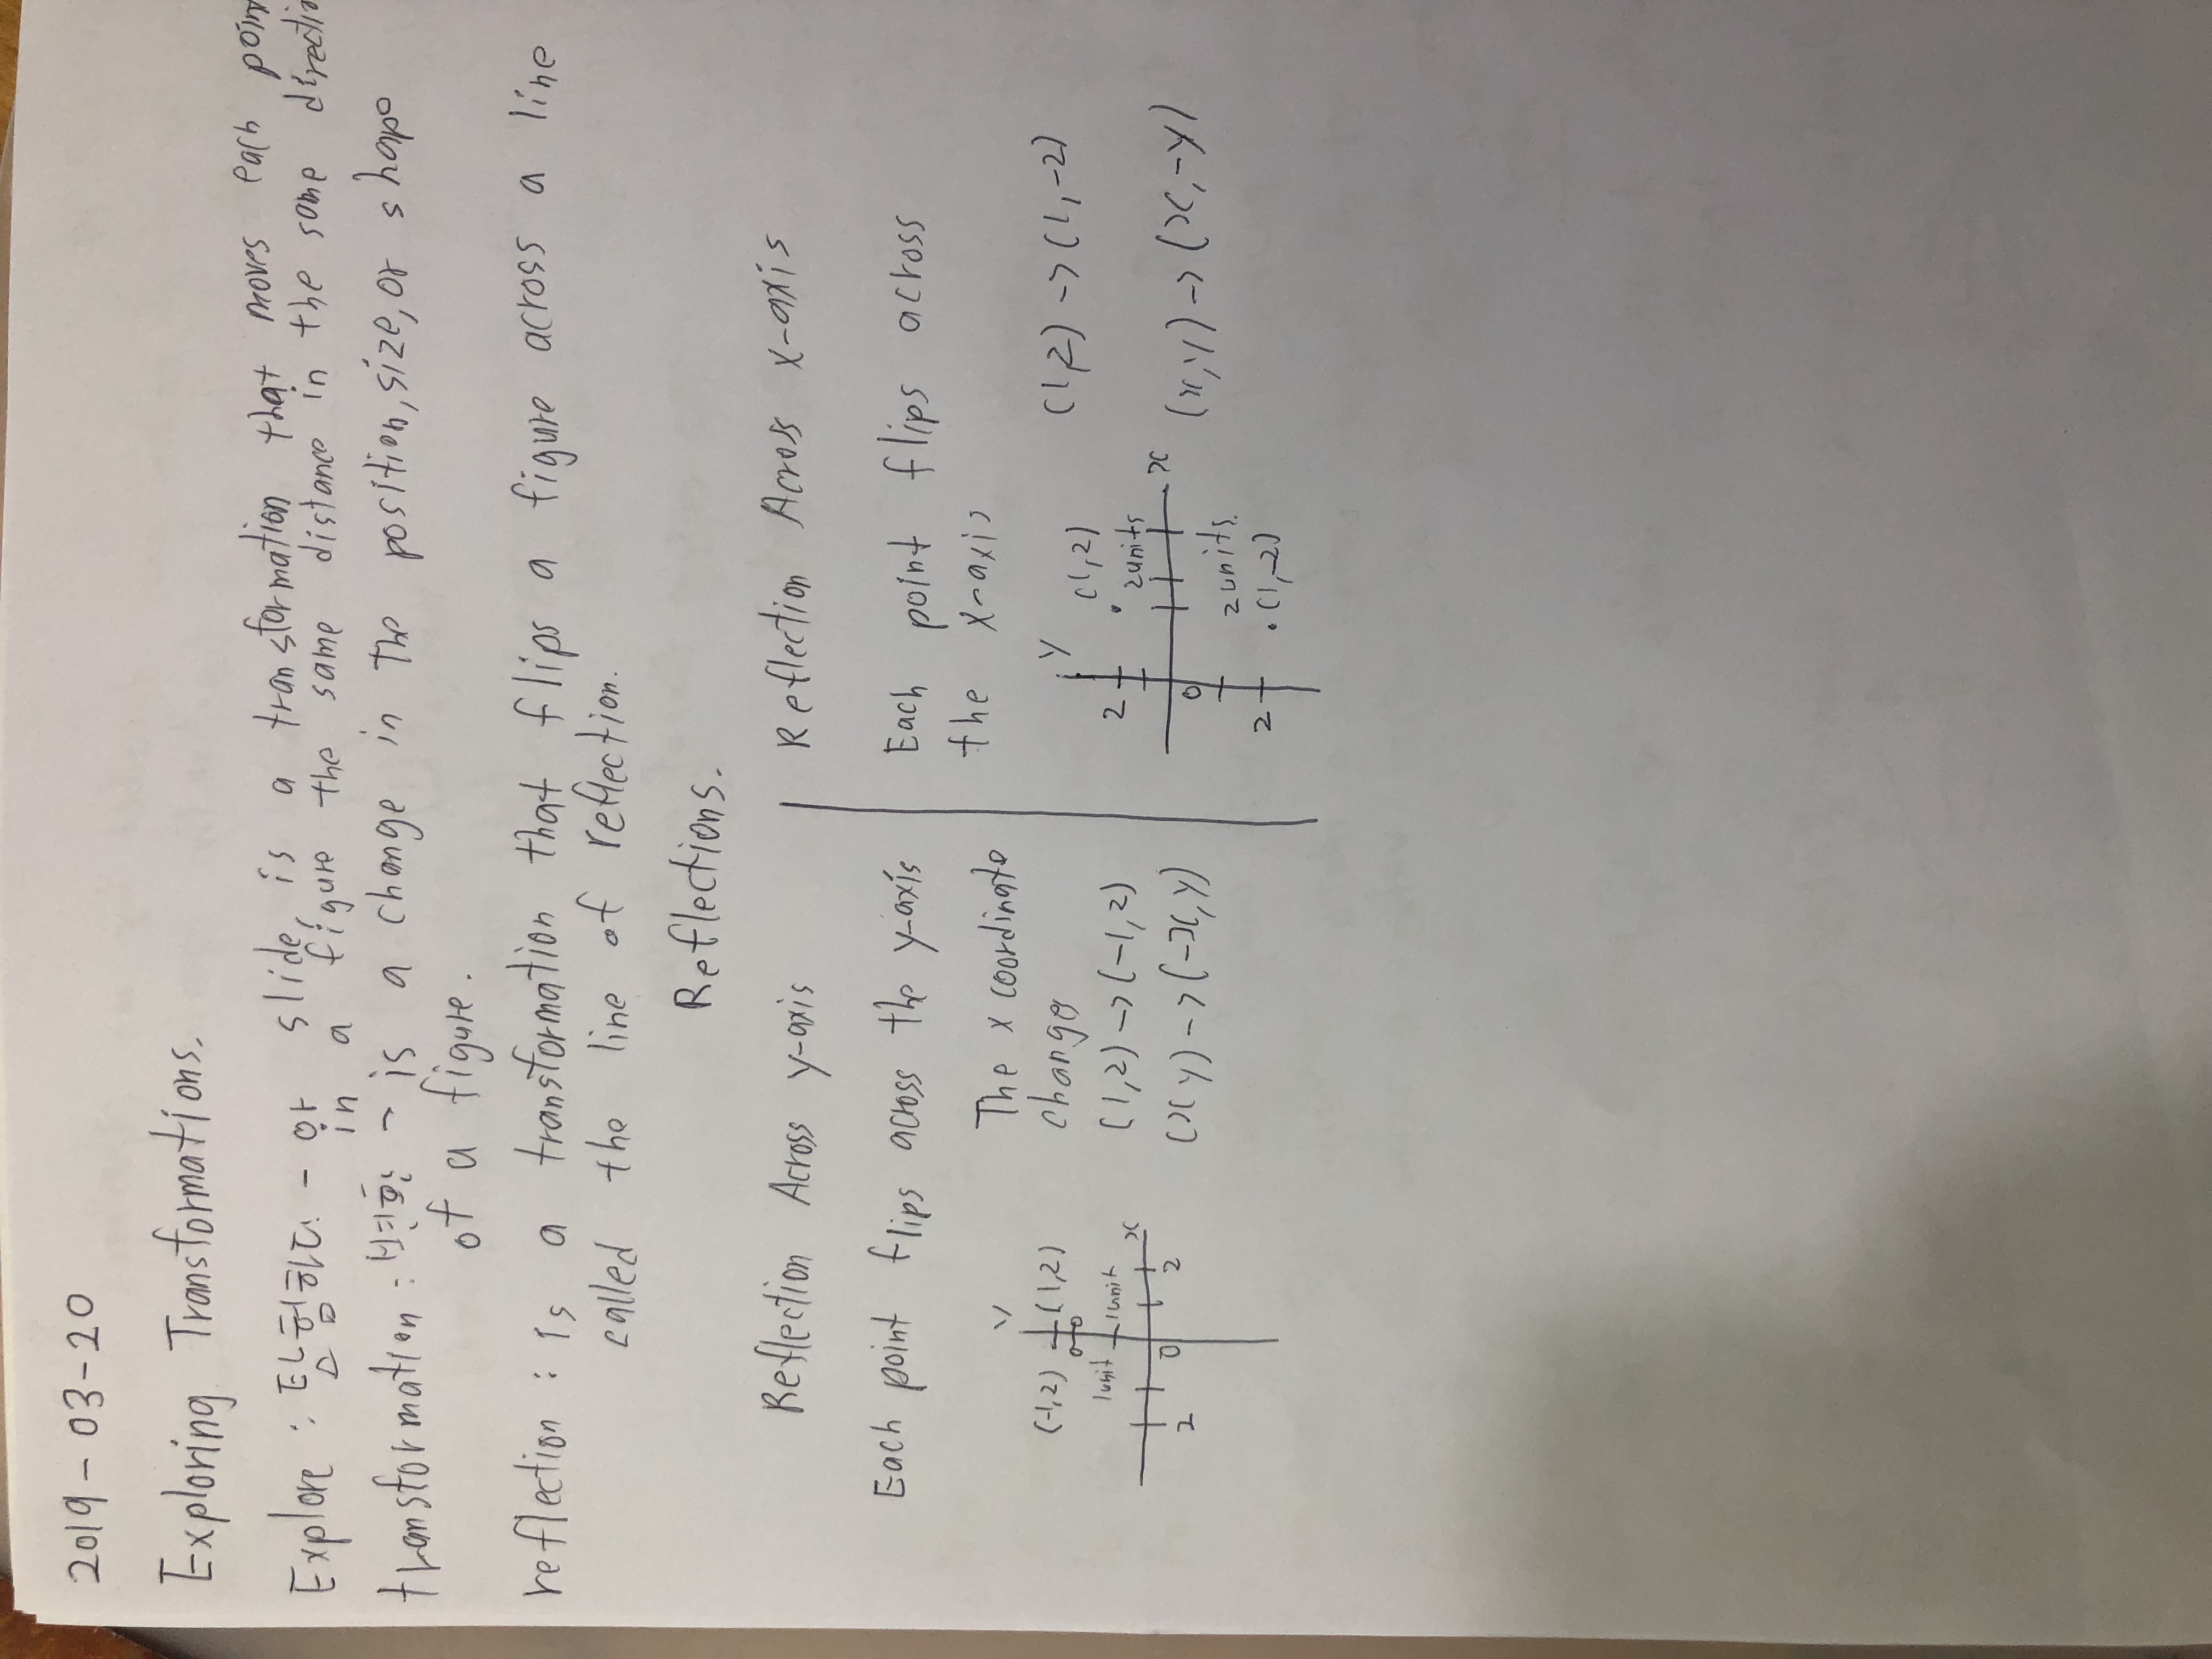 2019-03-20
Exploring Transformations.
Explore : 탐험하다 - or slide, is a transformation that moves each
in a figure the same distance in the same
transformation : 변형 - is a change in the position, size, or shape
of a figure.
reflection : is a transformation that flips a figure across a line
called the line of reflection.
Reflections.
Reflection Across y-axis
Each point flips across the y-axis
The x coordinate
change
(1,2) -> (-1,2)
(x y) -> (-x, y)
y
(-1,2) (1,2)
1unit 1unit
2 0 2 x
Reflection Across x-axis
Each point flips across
the x-axis
(1,2) -> (1,-2)
(x,y) -> (x,-y)
y
2 (1,2)
2units
0 x
2units.
2 (1,-2)